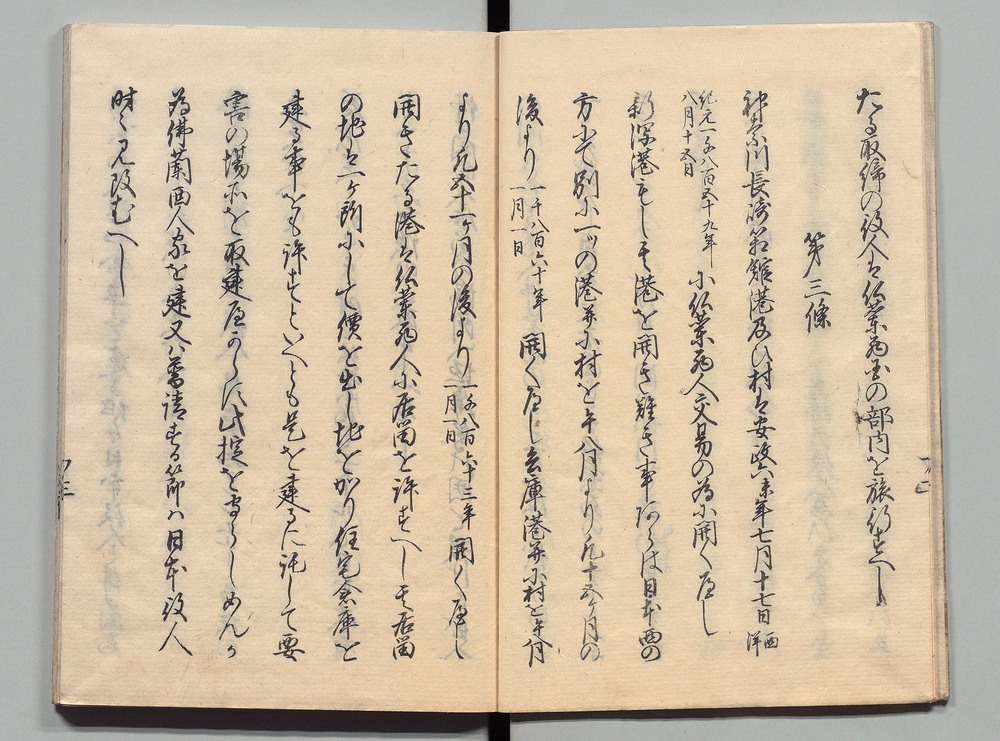 たる取締の役人は仏蘭西國の部内を旅行すへし
第三條
神奈川長崎箱館港及ひ村は安政六未年七月十七日西洋
紀元一千八百五十九年
八月十五日
小仏蘭西人交易の為に開くへし
新潟港もし其港を開き難き事あらは日本西の
方にて別に一ツの港并に村を午八月より凡十五ヶ月の
後より
一千八百六十年
一月一日
開くへし兵庫港并に村を午八月
より凡五十一ヶ月の後より
一千八百六十三年
一月一日
開くへし
開きたる港は仏蘭西人に居留を許すへし其居留
の地は一ヶ所にして價を出し地をかり住宅倉庫を
建る事をも許すといへとも是を建るに託して要
害の場所を取建へからす此掟を守らしめんか
為佛蘭西人家を建又は普請する節は日本役人
時々見改むへし